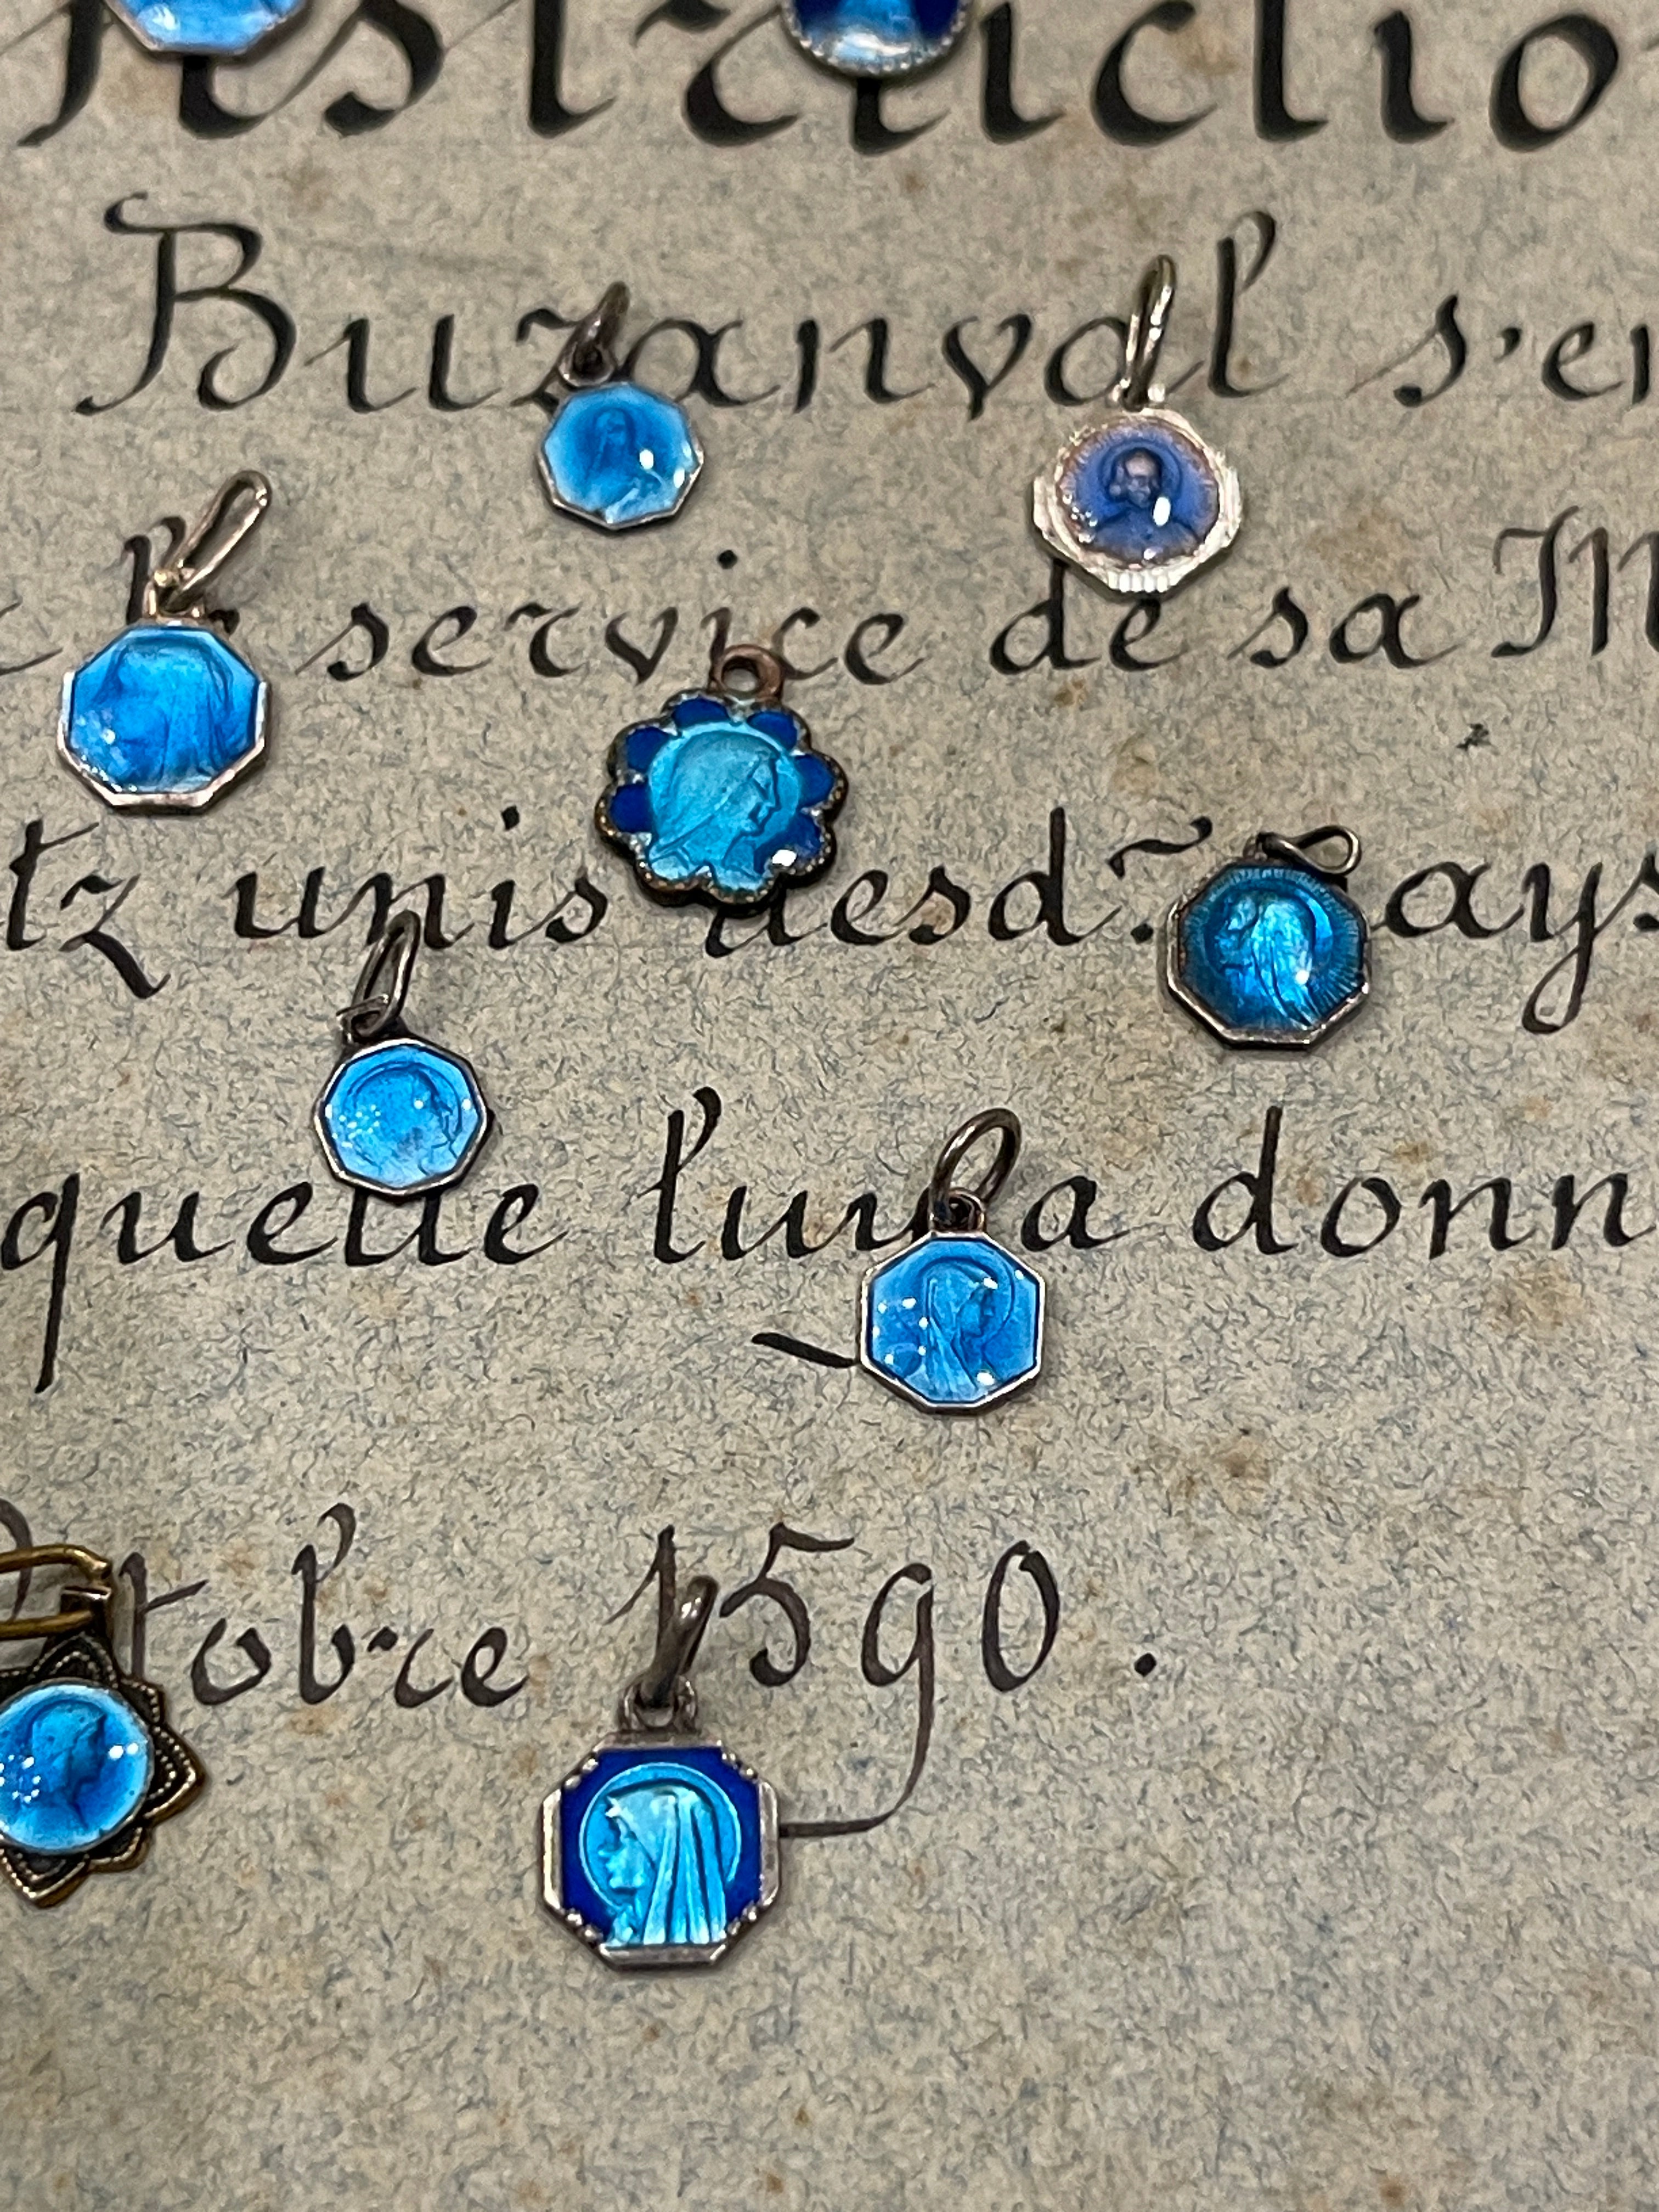 nstructio
Buzanval s'en
service de sa M
tz unis desd. Pays
quelle luy a donn
ctobre 1590.